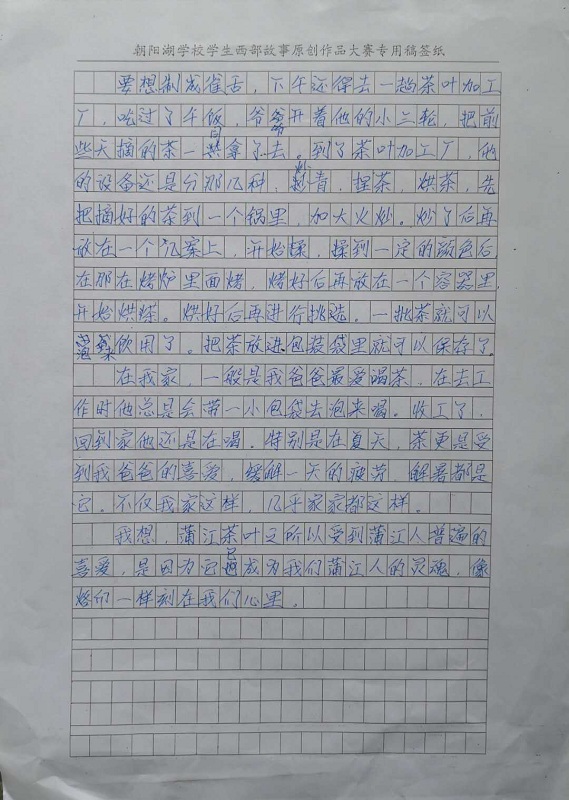 朝阳湖学校学生西部故事原创作品大赛专用稿签纸
要想制成雀舌，下午还得去一趟茶叶加工
厂，吃过了午饭，爷爷开着他的小三轮，把前
些天摘的茶一共拿了去。到了茶叶加工厂，他
的设备还是分那几种，炒青，捏茶，烘茶，先
把摘好的茶到一个锅里，加大火炒。炒了后再
放在一个记案上，开始揉，揉到一定的颜色后
在那在烤炉里面烤，烤好后再放在一个容器里，
开始烘烤。烘好后再进行挑选。一批茶就可以
泡茶饮用了。把茶放进包装袋里就可以保存了。
在我家，一般是我爸爸最爱喝茶，在去工
作时他总是会带一小包袋去泡来喝。收工了，
回到家他还是在喝。特别是在夏天，茶更是受
到我爸爸的喜爱，缓解一天的疲劳，解暑都是
它。不仅我家这样，几乎家家都这样。
我想，蒲江茶叶之所以受到蒲江人普遍的
喜爱，是因为它已成为我们蒲江人的灵魂，像
烙印一样刻在我们心里。